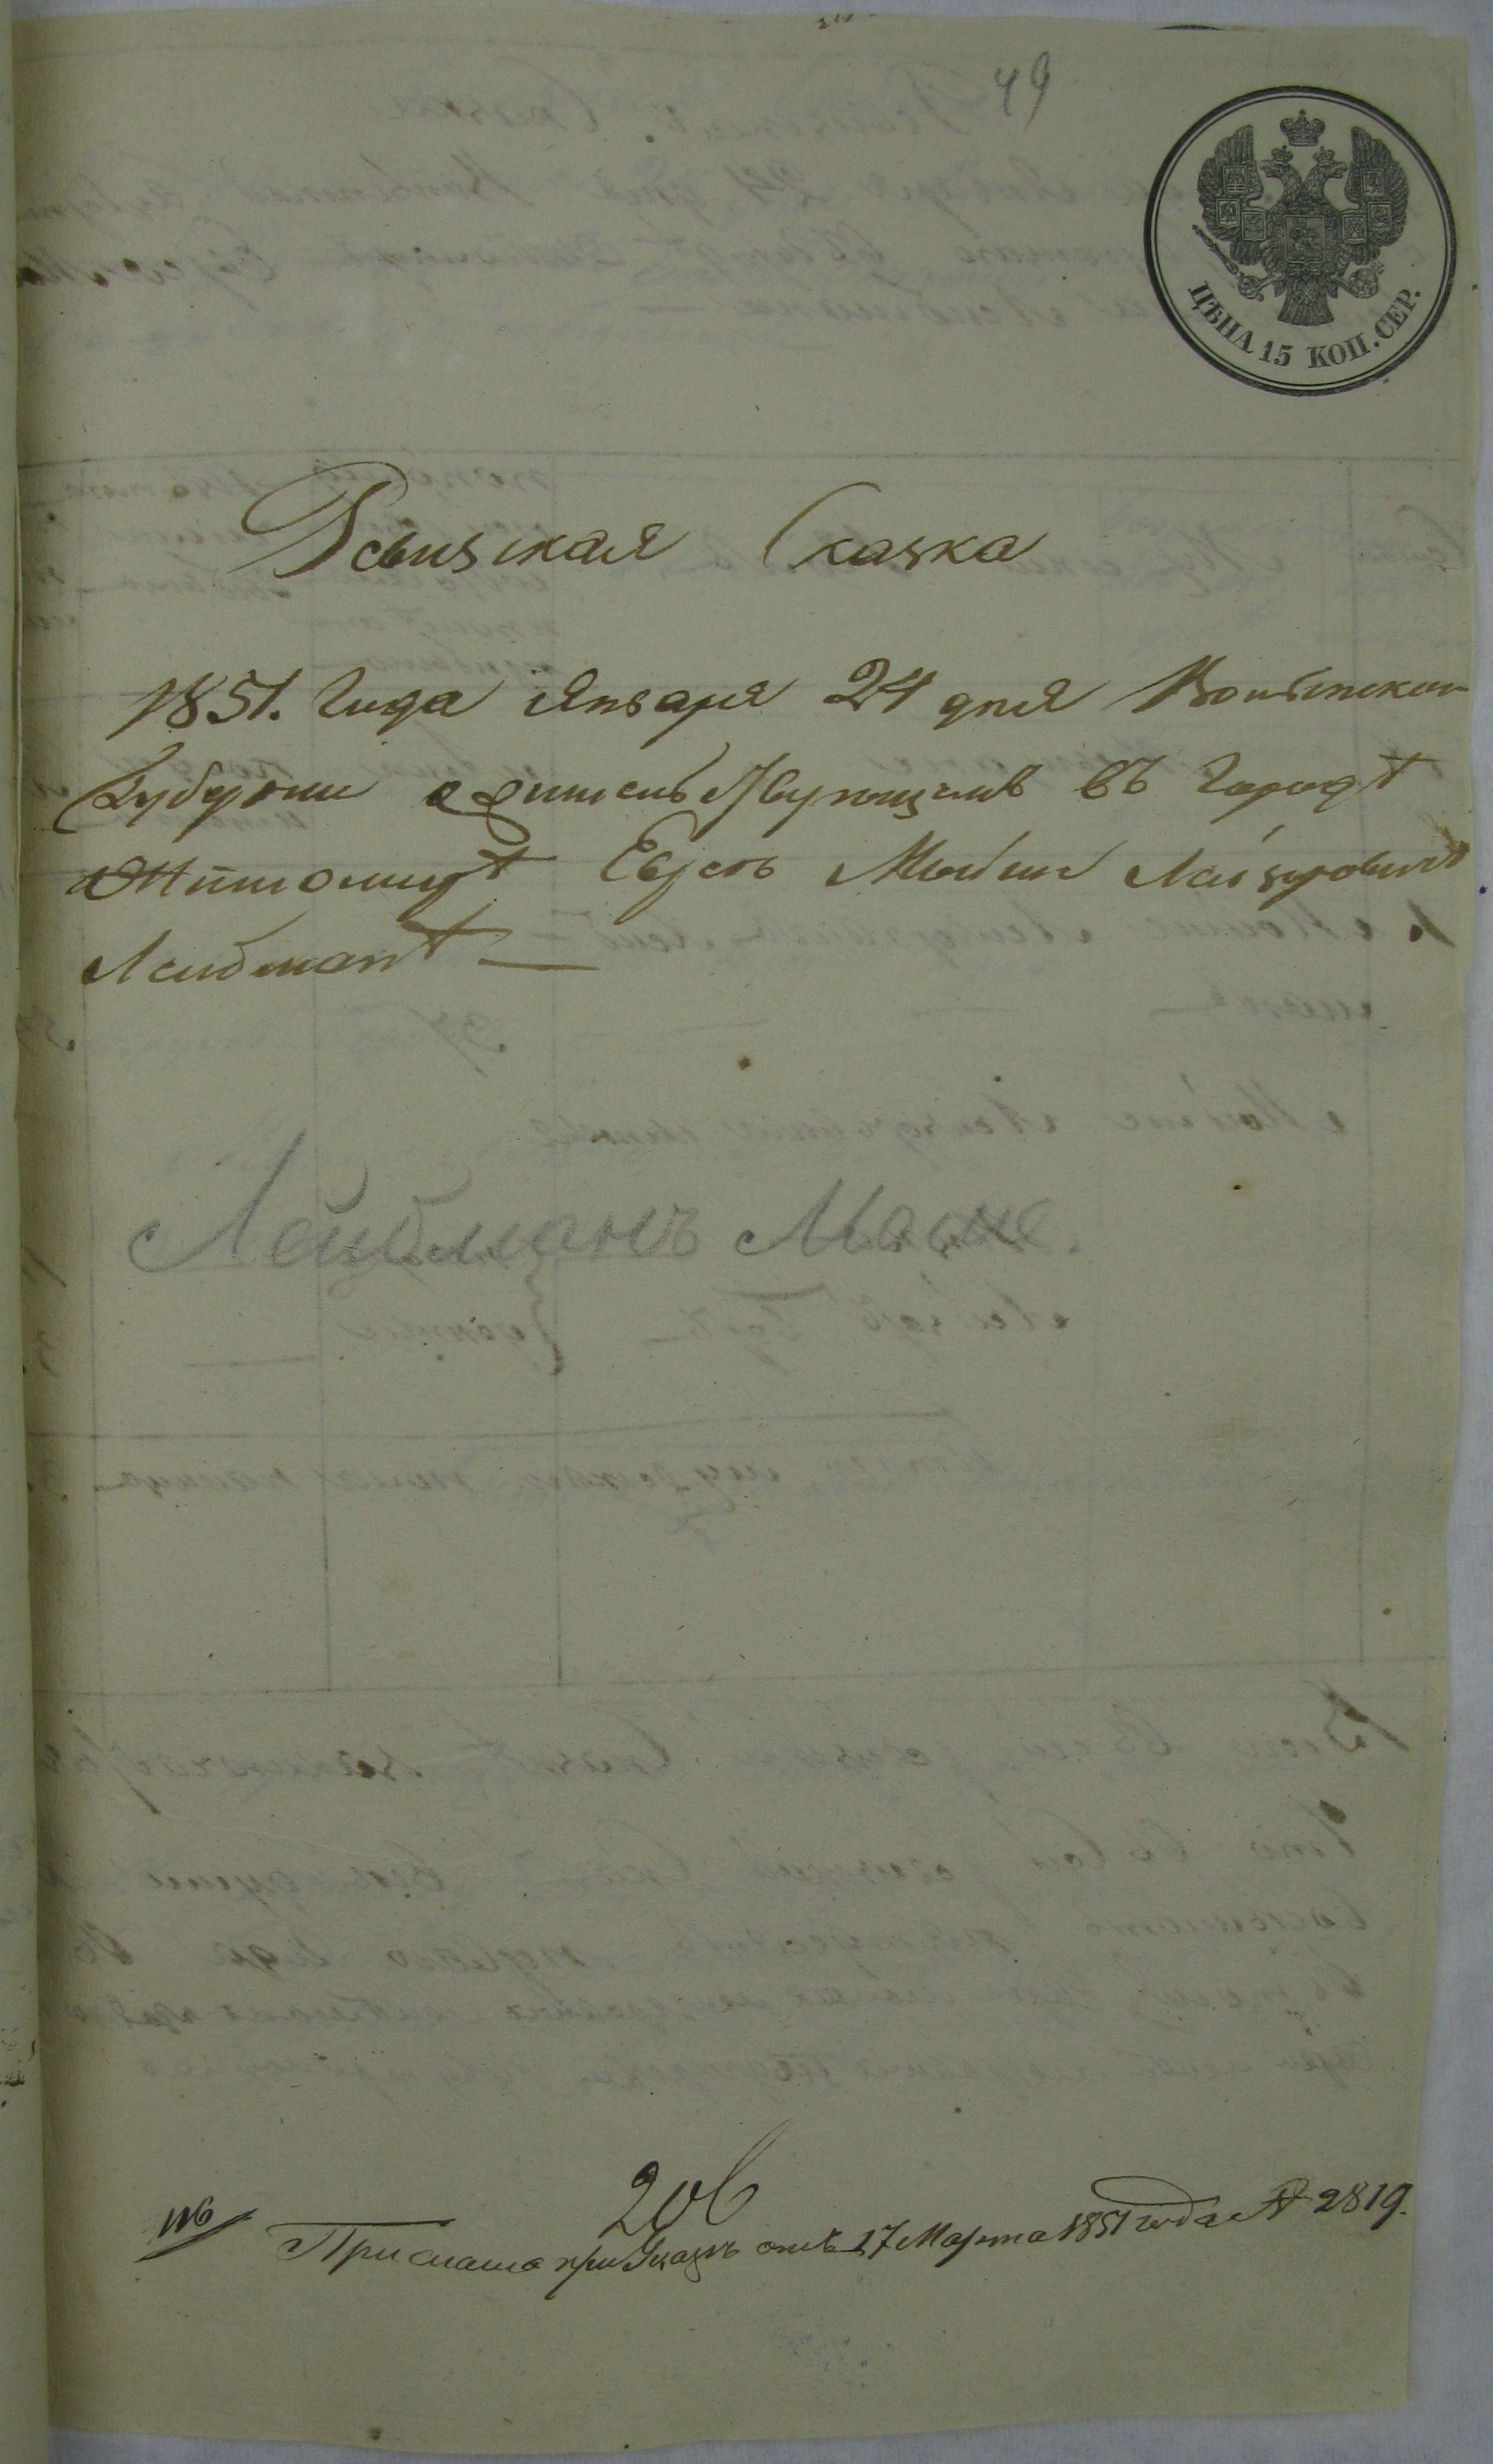 49
ЦѢНА 15 КОП. СЕР.
Ревизская Сказка
1851. Года Января 24 дня Волынской
Губернiи о жительствующемъ въ Городѣ
Житомирѣ Евреѣ Мойше Лейзеровичѣ
Лейбманѣ
Лейбманъ Мошко.
206
Прислана при Указѣ отъ 17 Марта 1851 года № 2819.